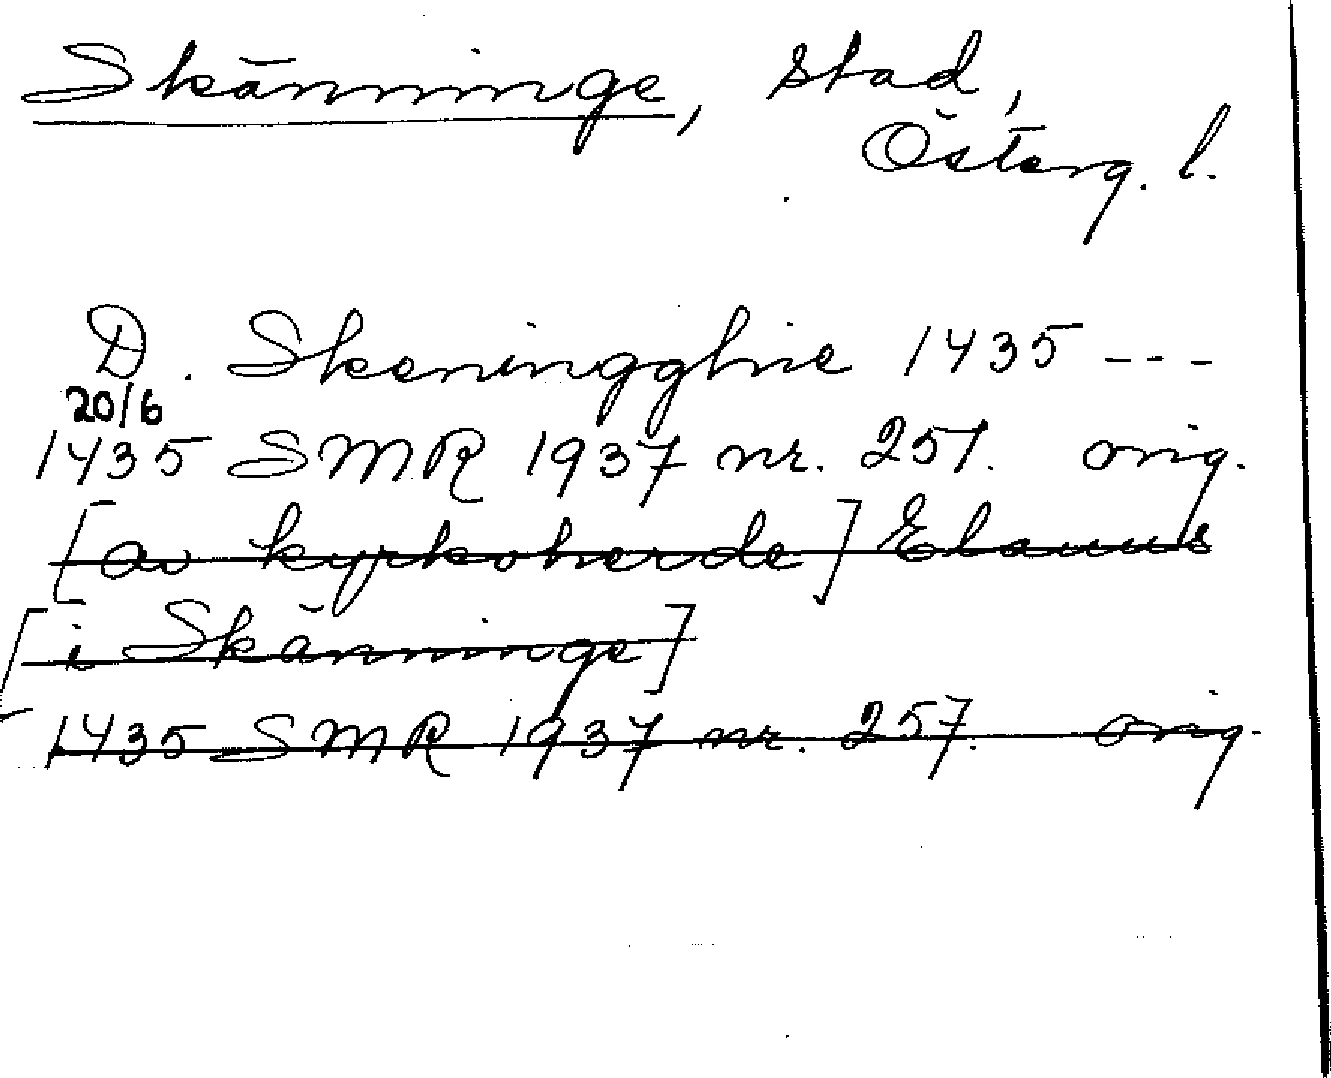 Skänninge, stad,
Österg. l.
D. Skeningghie 1435 ---
20/6
1435 SMR 1937 nr. 257. orig.
[av kyrkoherde] Elavus
[i Skänninge]
1435 SMR 1937 nr. 257. orig.